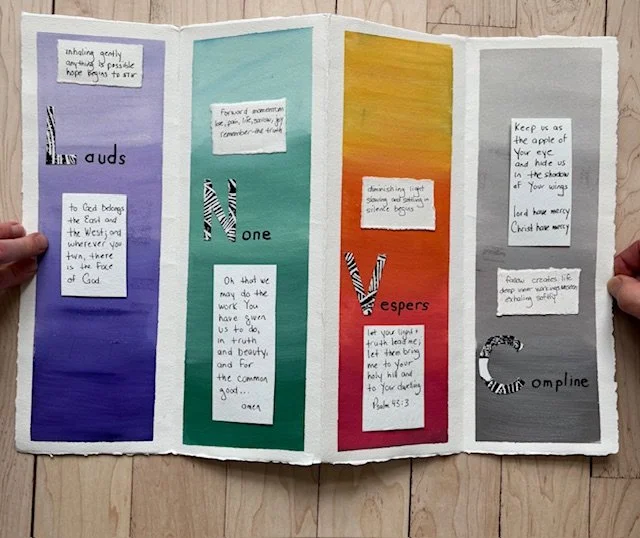 inhaling gently
anything is possible
hope begins to stir
Lauds
to God belongs
the East and
the West; and
wherever you
turn, there
is the Face
of God.
forward momentum
love, pain, life, sorrow, joy
remember-the truth
None
Oh that we
may do the
work You
have given
us to do,
in truth
and beauty,
and for
the common
good...
amen
diminishing light
slowing and settling in
silence begins
Vespers
let your light +
truth lead me;
let them bring
me to your
holy hill and
to your dwelling
Psalm 43:3
Keep us as
the apple of
your eye
and hide us
in the shadow
of Your wings
lord have mercy
Christ have mercy
fallow creates life
deep inner workings unseen
exhaling softly
Compline